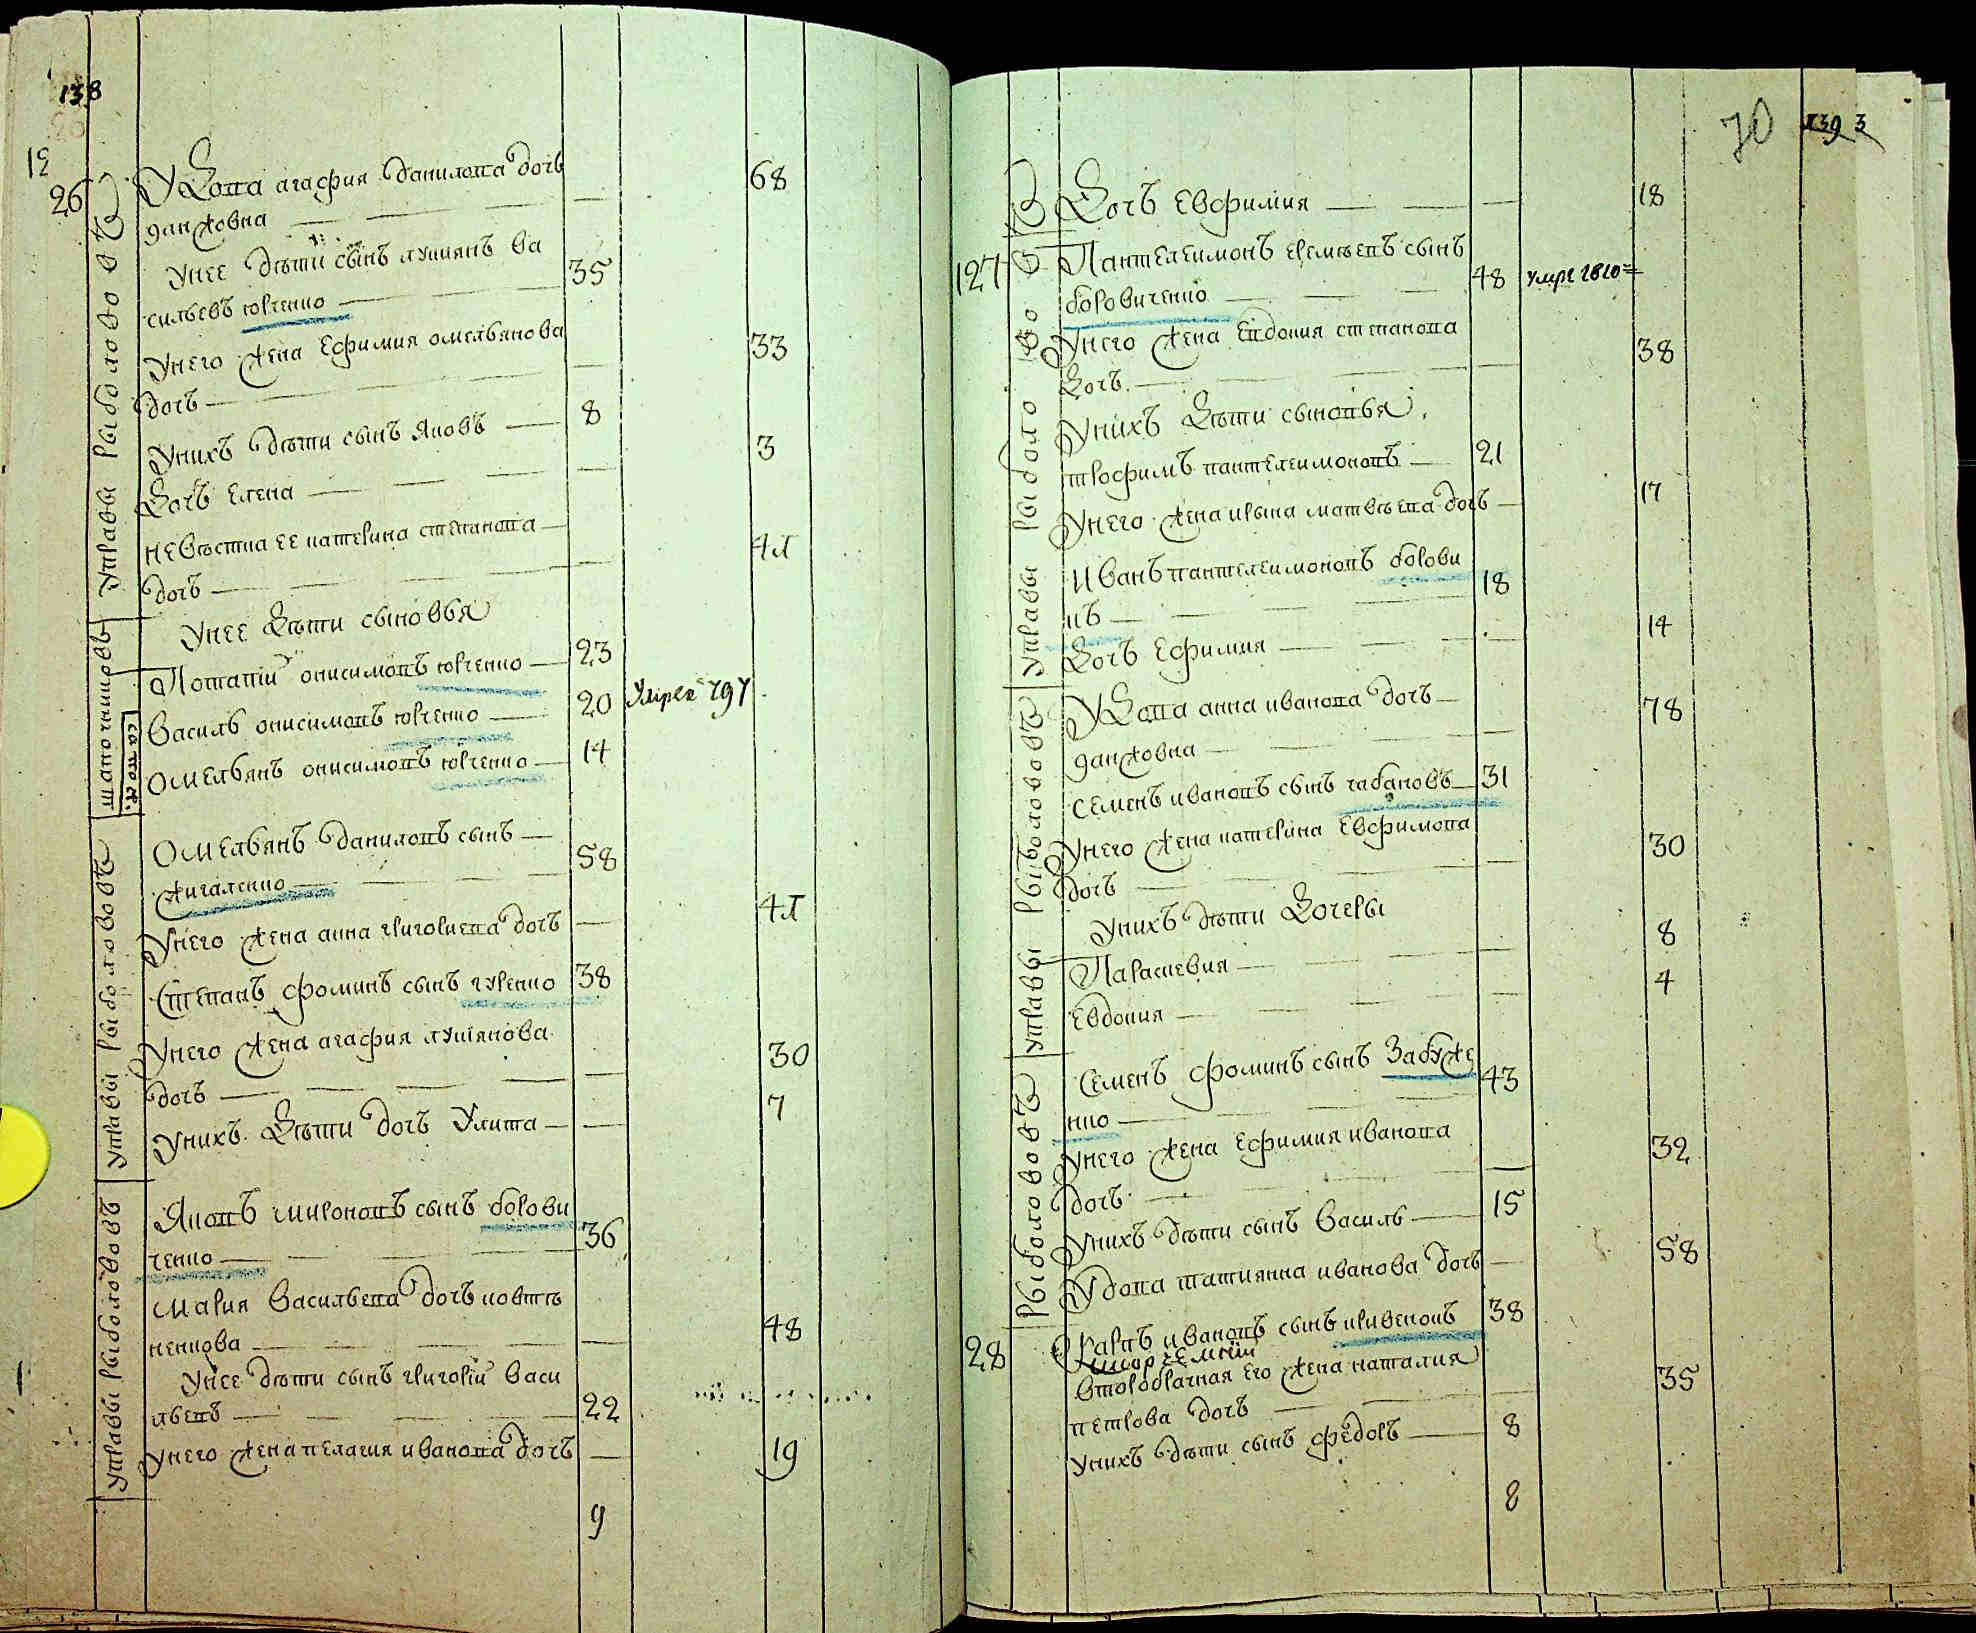 138
12
26
Удова агафия данилова дочъ
ганжовна
68
унее дѣти сынъ лукиянъ ва
сильевъ юрченко
35
унего жена ефимия омельянова
дочъ
33
унихъ дѣти сынъ яковъ
8
дочъ елена
3
невѣстка ее катерина степанова
дочъ
унее дѣти сыновья
Потапій онисимовъ юрченко
23
василь онисимовъ юрченко
20
омельянъ онисимовъ юрченко
14
омельянъ даниловъ сынъ
жигаленко
58
унего жена анна григориева дочъ
степанъ фоминъ сынъ гуренко
38
унего жена агафия лукиянова
дочъ
30
унихъ дѣти дочъ улита
7
яковъ мироновъ сынъборови
ченко
36
мария васильева дочъ ковтѣ
ненкова
48
унее дѣти сынъ григорій васи
льевъ
22
унего жена пелагия иванова дочъ
19
9
управы рыболововъ
управы рыболововъ
70
139
3
дочъ евфимия
18
127
Пантелеимонъ еремѣевъ сынъ
боровиченко
48
умре 1810
унего жена евдокия степанова
дочъ
38
унихъ дѣти сыновья
трофимъ пантелеимоновъ
21
унего жена ирына матвѣева дочъ
17
иванъ пантелеимоновъ борови
къ
18
дочъ ефимия
14
удова анна иванова дочъ
ганжовна
78
семенъ ивановъ сынъ чабановъ
31
унего жена катерина евфимова
дочъ
30
унихъ дѣти дочеры
Параскевия
8
евдокия
4
семенъ фоминъ сынъ забуже
нко
43
унего жена ефимия иванова
дочъ
32
унихъ дѣти сынъ василь
15
удова татиянна иванова дочъ
58
28
карпъ ивановъ сынъ кривенокъ
38
второбрачная его жена наталия
петрова дочъ
35
унихъ дѣти сынъ федоръ
8
8
управы рыболововъ
рыболововъ